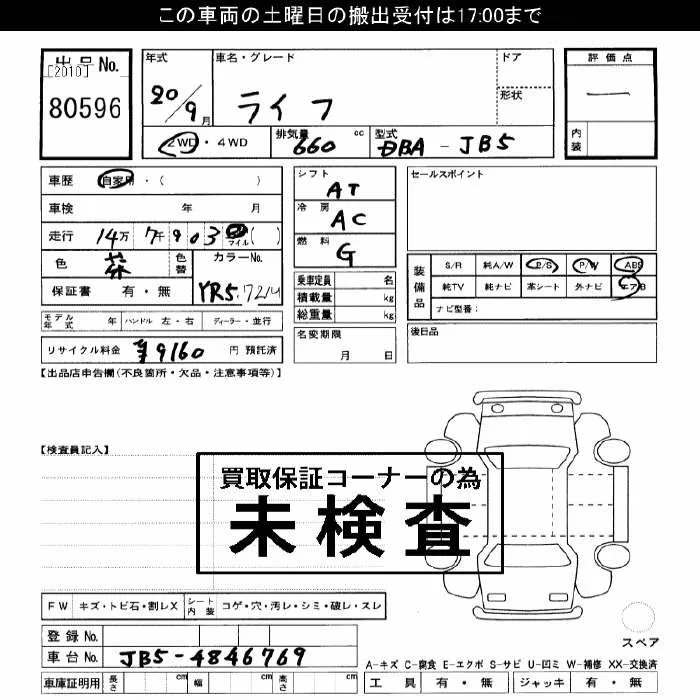 この車両の土曜日の搬出受付は17:00まで
出品No. [2010] 80596
年式 20/9月 車名・グレード ライフ ドア 形状
評価点 ー
内装
2WD・4WD 排気量 660 cc 型式 DBA-JB5
車歴 自家用・( )
車検 年 月
走行 14万7千903 マイル( )
色 茶 色替 カラーNo. YR5
保証書 有・無
シフト AT
冷房 AC
燃料 G
乗車定員 名
積載量 kg
総重量 kg
セールスポイント
装備品 S/R 純A/W P/S P/W ABS
純TV 純ナビ 革シート 外ナビ エアB
ナビ型番:
モデル年式 年 ハンドル 左・右 ディーラー・並行
リサイクル料金 ¥9160 円 預託済
名変期限 月 日
後日品
【出品店申告欄(不良箇所・欠品・注意事項等)】
【検査員記入】
買取保証コーナーの為
未検査
FW キズ・トビ石・割レX シート内装 コゲ・穴・汚レ・シミ・破レ・スレ
登録No.
車台No. JB5-4846769
車庫証明用 長さ cm 幅 cm 高さ cm
スペア
A-キズ C-腐食 E-エクボ S-サビ U-凹ミ W-補修 XX-交換済
工具 有・無 ジャッキ 有・無